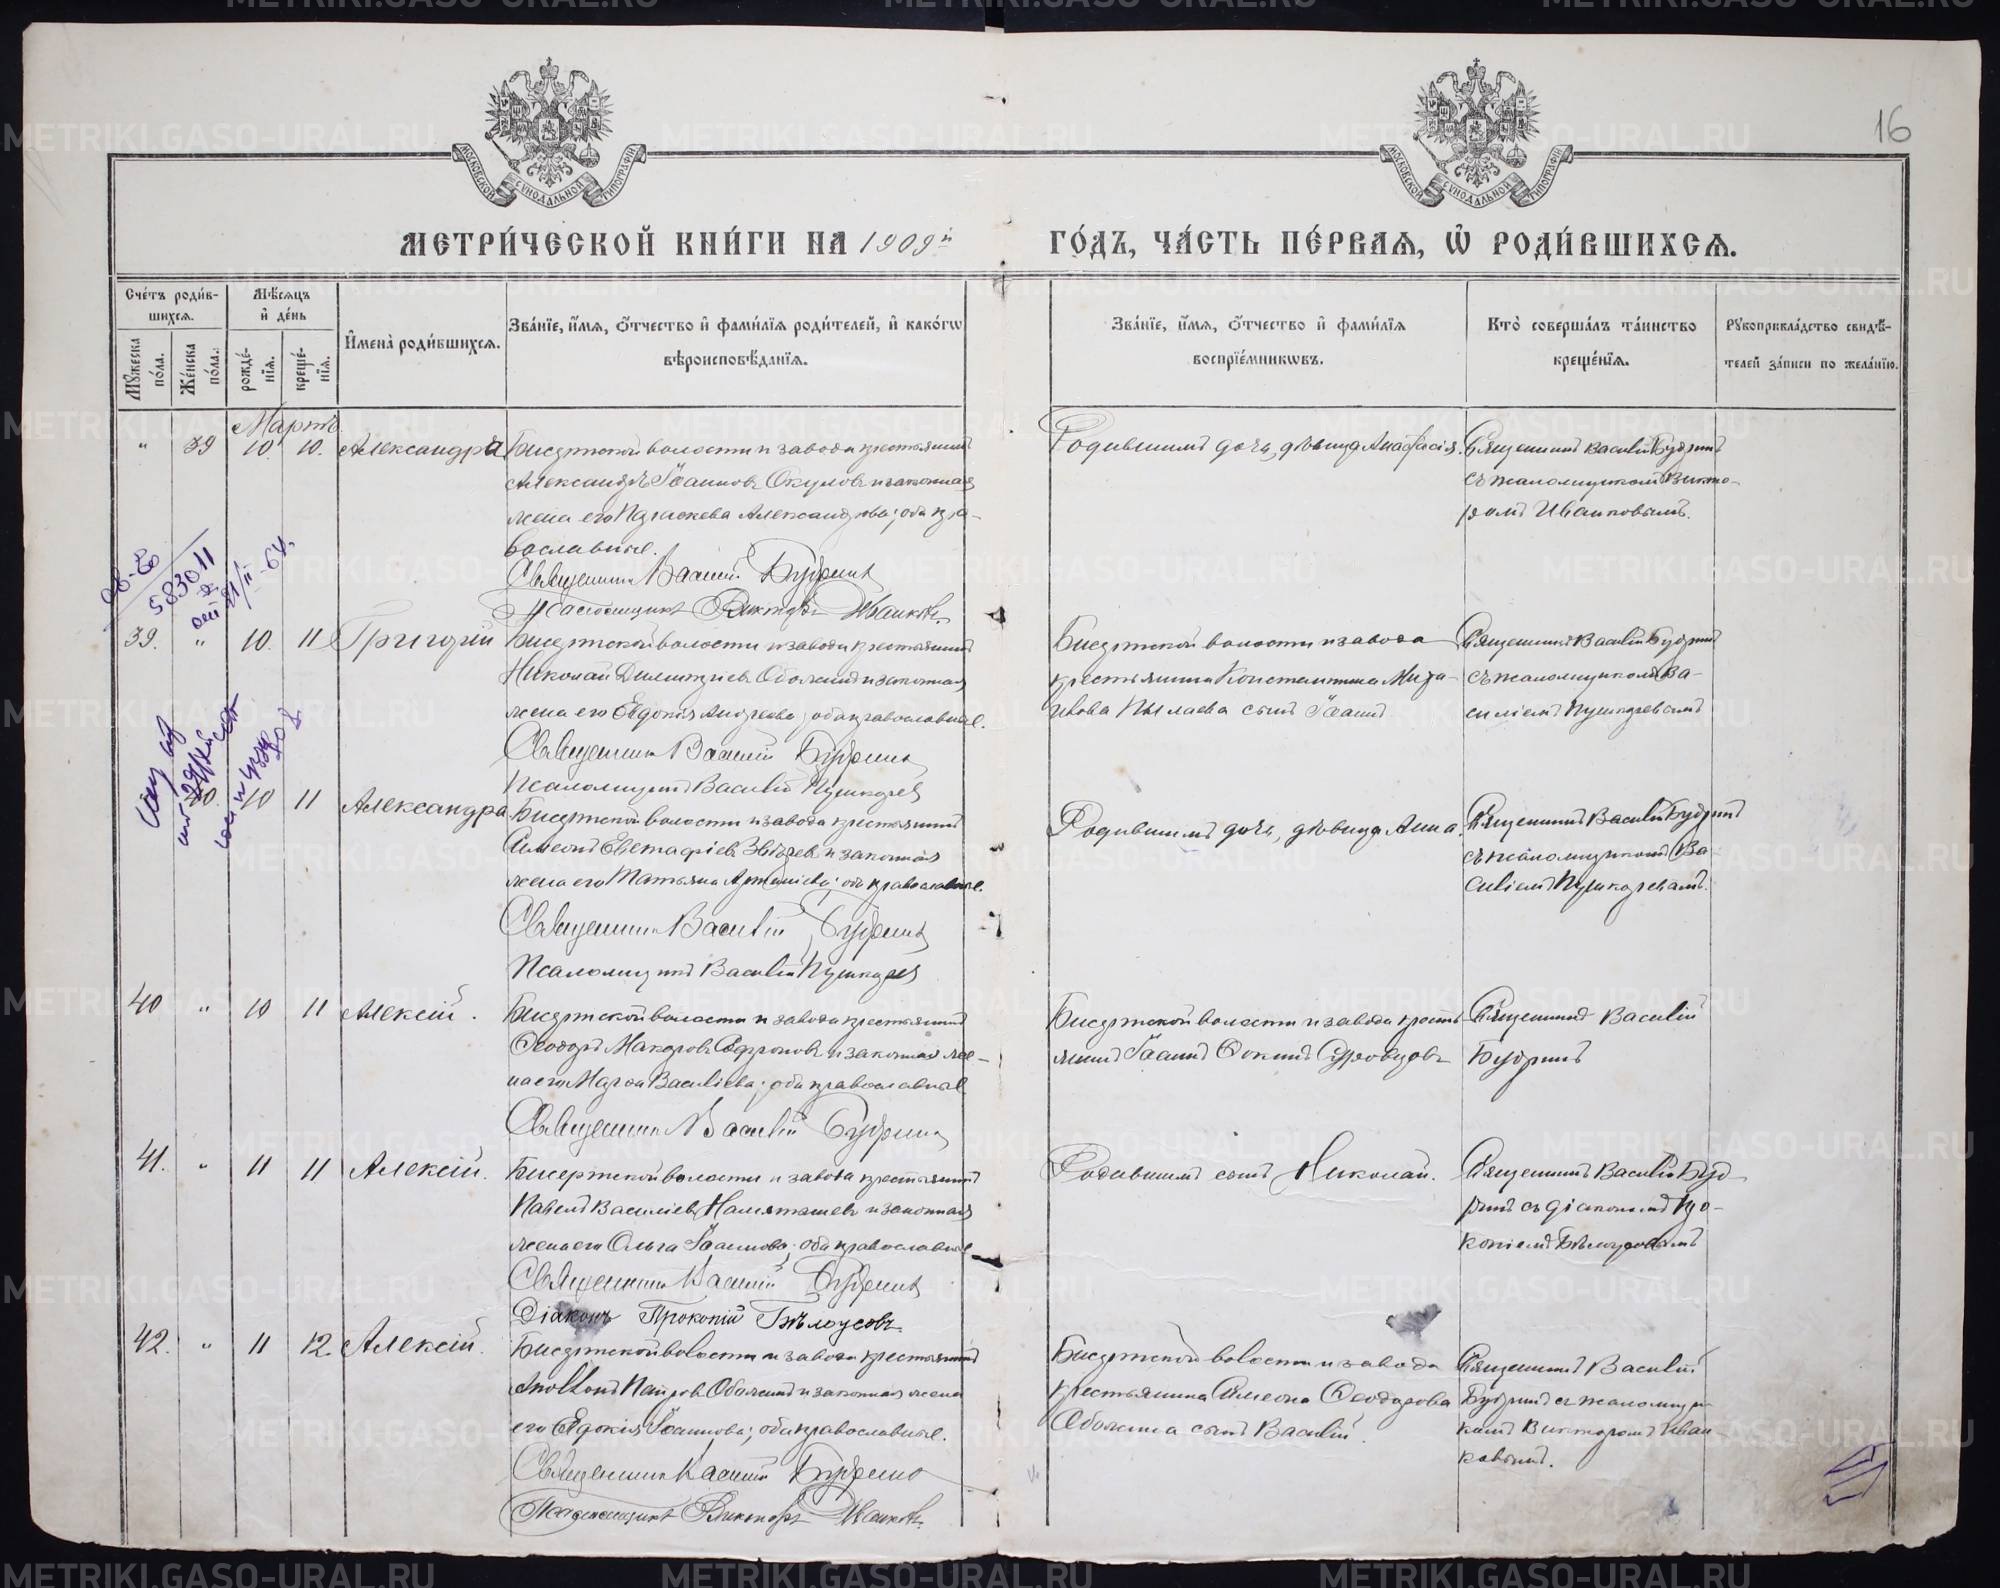 16
МОСКОВСКОЙ СѴНОДАЛЬНОЙ ТИПОГРАФІИ
МОСКОВСКОЙ СѴНОДАЛЬНОЙ ТИПОГРАФІИ
МЕТРИ́ЧЕСКОЙ КНИ́ГИ НА 1909й ГО́ДЪ, ЧА́СТЬ ПЕ́РВАЯ, Ѡ҆ РОДИ́ВШИХСЯ.
Сче́тъ роди́в-
шихся.
Мѣ́сяцъ
и҆ де́нь
Мꙋ́жеска по́ла.
Же́нска по́ла.
рожде́-
нїя.
креще́-
нїя.
И҆мена̀ роди́вшихся.
Зва́нїе, и҆́мя, ѻ҆́тчество и҆ фами́лїя роди́телей, и҆ како́гѡ
вѣроисповѣ́данїя.
Зва́нїе, и҆́мя, ѻ҆́тчество и҆ фами́лїя
воспрїе́мникѡвъ.
Кто̀ соверша́лъ та́инство
креще́нїя.
Рꙋкоприкла́дство свидѣ́-
телей за́писи по жела́нїю.
Мартъ
" 39 10. 10. Александра
Бисертской волости и завода крестьянинъ
Александръ Іоанновъ Окуловъ и законная
жена его Параскева Александрова; оба пра-
вославные.
Священникъ Василій Будринъ
Псаломщикъ Викторъ Иванковъ.
Родившимъ дочь, дѣвица Анастасія.
Священникъ Василій Будринъ
съ псаломщикомъ Викто-
ромъ Иванковымъ.
39. " 10. 11 Григорій
Бисертской волости и завода крестьянинъ
Николай Димитріевъ Оболенинъ и законная
жена его Евдокія Андреева; оба православные.
Священникъ Василій Будринъ
Псаломщикъ Василій Пушкаревъ
Бисертской волости и завода
крестьянина Константина Мира-
нова Пылаева сынъ Іоаннъ
Священникъ Василій Будринъ
съ псаломщикомъ Ва-
силіемъ Пушкаревымъ
40. 10 11 Александра
Бисертской волости и завода крестьянинъ
Симеонъ Евстафіевъ Звѣревъ и законная
жена его Татьяна Артеміева; оба православные.
Священникъ Василій Будринъ
Псаломщикъ Василій Пушкаревъ
Родившимъ дочь, дѣвица Анна.
Священникъ Василій Будринъ
съ псаломщикомъ Ва-
силіемъ Пушкаревымъ.
40 " 10 11 Алексій.
Бисертской волости и завода крестьянинъ
Ѳеодоръ Макаровъ Сафроновъ и законная же-
на его Марѳа Василіева; оба православные
Священникъ Василій Будринъ
Бисертской волости и завода кресть-
янинъ Іоаннъ Ѳокинъ Суровцовъ
Священникъ Василій
Будринъ
41. " 11 11 Алексій.
Бисертской волости и завода крестьянинъ
Павелъ Василіевъ и законная
жена его Ольга Іоаннова; оба православные
Священникъ Василій Будринъ
Діаконъ Прокопій Бѣлоусовъ.
Родившимъ сынъ Николай.
Священникъ Василій Буд-
ринъ съ діакономъ Про-
копіемъ Бѣлоусовымъ
42. " 11 12. Алексій.
Бисертской волости и завода крестьянинъ
Аполлонъ Петровъ Оболенинъ и законная жена
его Евдокія Іоаннова; оба православные.
Священникъ Василій Будринъ
Псаломщикъ Викторъ Иванковъ.
Бисертской волости и завода
крестьянина Симеона Ѳеодорова
Оболенина сынъ Василій.
Священникъ Василій
Будринъ съ псаломщи-
комъ Викторомъ Иван-
ковымъ.
METRIKI.GASO-URAL.RU